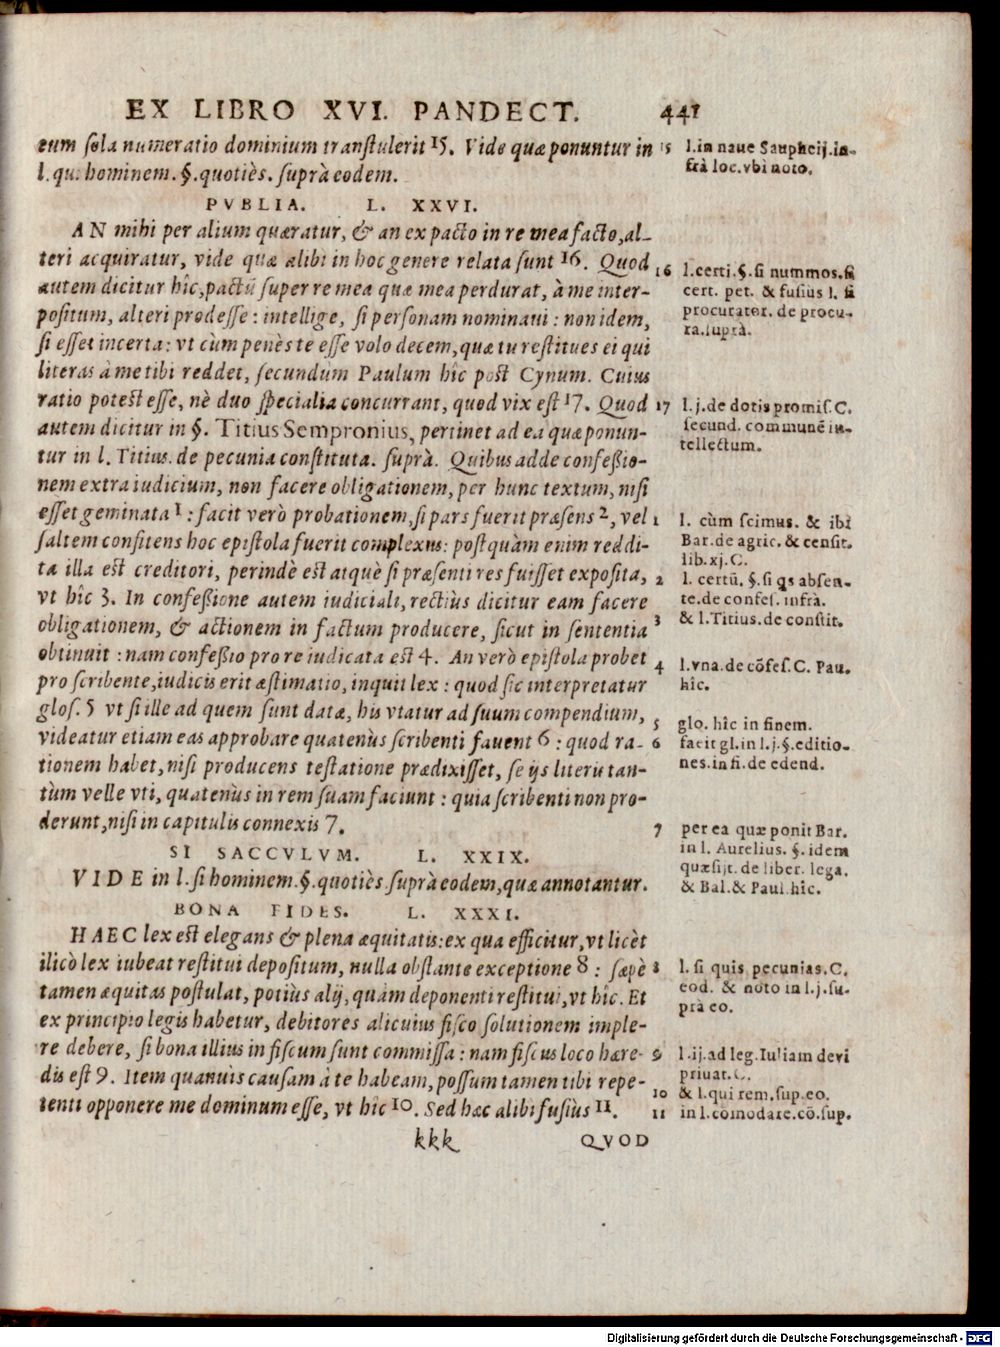 EX LIBRO XVI. PANDECT. 441
eum ſola numeratio dominium tranſtulerit 15. Vide quæ ponuntur in
l. qui hominem. §. quotiès. ſuprà eodem.
PVBLIA. L. XXVI.
AN mihi per alium quæratur, & an ex pacto in re mea facto, al-
teri acquiratur, vide quæ alibi in hoc genere relata ſunt 16. Quod
autem dicitur hîc, pactū ſuper re mea quæ mea perdurat, à me inter-
poſitum, alteri prodeſſe: intellige, ſi perſonam nominaui: non idem,
ſi eſſet incerta: vt cùm penès te eſſe volo decem, quæ tu reſtitues ei qui
literas à me tibi reddet, ſecundùm Paulum hîc poſt Cynum. Cuius
ratio poteſt eſſe, nè duo ſpecialia concurrant, quod vix eſt 17. Quod
autem dicitur in §. Titius Sempronius, pertinet ad ea quæ ponun-
tur in l. Titius. de pecunia conſtituta. ſuprà. Quibus adde confeßio-
nem extra iudicium, non facere obligationem, per hunc textum, niſi
eſſet geminata 1: facit verò probationem, ſi pars fuerit præſens 2, vel
ſaltem conſitens hoc epiſtola fuerit complexus: poſtquàm enim reddi-
ta illa eſt creditori, perindè eſt atquè ſi præſenti res fuiſſet expoſita,
vt hîc 3. In confeßione autem iudiciali, rectiùs dicitur eam facere
obligationem, & actionem in factum producere, ſicut in ſententia
obtinuit: nam confeßio pro re iudicata eſt 4. An verò epiſtola probet
pro ſcribente, iudicis erit æſtimatio, inquit lex: quod ſic interpretatur
gloſ. 5 vt ſi ille ad quem ſunt datæ, his vtatur ad ſuum compendium,
videatur etiam eas approbare quatenùs ſcribenti fauent 6: quod ra-
tionem habet, niſi producens teſtatione prædixiſſet, ſe ijs literis tan-
tùm velle vti, quatenùs in rem ſuam faciunt: quia ſcribenti non pro-
derunt, niſi in capitulis connexis 7.
SI SACCVLVM. L. XXIX.
VIDE in l. ſi hominem. §. quotiès. ſuprà eodem, quæ annotantur.
BONA FIDES. L. XXXI.
HAEC lex eſt elegans & plena æquitatis: ex qua efficitur, vt licèt
ilicò lex iubeat reſtitui depoſitum, nulla obſtante exceptione 8: ſæpè
tamen æquitas poſtulat, potiùs alij, quàm deponenti reſtitui, vt hîc. Et
ex principio legis habetur, debitores alicuius fiſco ſolutionem imple-
re debere, ſi bona illius in fiſcum ſunt commiſſa: nam fiſcus loco hære-
dis eſt 9. Item quanuis cauſam à te habeam, poſſum tamen tibi repe-
tenti opponere me dominum eſſe, vt hîc 10. Sed hæc alibi fuſiùs 11.
kkk QVOD
15 l. in naue Saupheij. in-
frà loc. vbi noto.
16 l. certi. §. ſi nummos. ſi
cert. pet. & fuſius l. ſi
procurator. de procu-
ra. ſuprà.
17 l. j. de dotis promiſ. C.
ſecund. communē in-
tellectum.
1 l. cùm ſcimus. & ibi
Bar. de agric. & cenſit.
lib. xj. C.
2 l. certū. §. ſi qs abſen-
te. de confeſ. infrà.
3 & l. Titius. de conſtit.
4 l. vna. de cōfeſ. C. Pau.
hîc.
5 glo. hîc in finem.
6 facit gl. in l. j. §. editio-
nes. in fi. de edend.
7 per ea quæ ponit Bar.
in l. Aurelius. §. idem
quæſijt. de liber. lega.
& Bal. & Paul. hîc.
8 l. ſi quis pecunias. C.
eod. & noto in l. j. ſu-
prà eo.
9 l. ij. ad leg. Iuliam devi
priuat. C.
10 & l. qui rem. ſup. eo.
11 in l. cōmodare. cō. ſup.
Digitalisierung gefördert durch die Deutsche Forschungsgemeinschaft - DFG